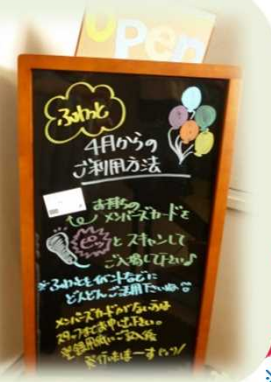 open
ふわっと
4月からの
ご利用方法
お持ちの
メンバーズカードを
ピッとスキャンして
ご入場して下さい♪
※ふわっとをイベントなどに
どんどんご活用下さいね
メンバーズカードがない方は
スタッフまでお申し出下さい。
登録用紙にご記入後